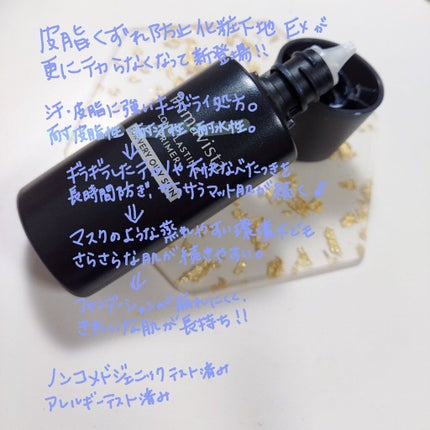 皮脂くずれ防止化粧下地 EXが
更にテカらなくなって新登場!!
汗・皮脂に強いキープドライ処方。
耐皮脂性 耐汗性 耐水性。
↓
ギラギラしたテカリや不快なべたつきを
長時間防ぎ、サラサラマット肌が続く♪
⇓
マスクのような蒸れやすい環境下でも
さらさらな肌が続きやすい。
⇓
ファンデーションが崩れにくく、
きれいな肌が長持ち!!
ノンコメドジェニックテスト済み
アレルギーテスト済み
LONG LASTING
PRIMER
VERY OILY SKIN